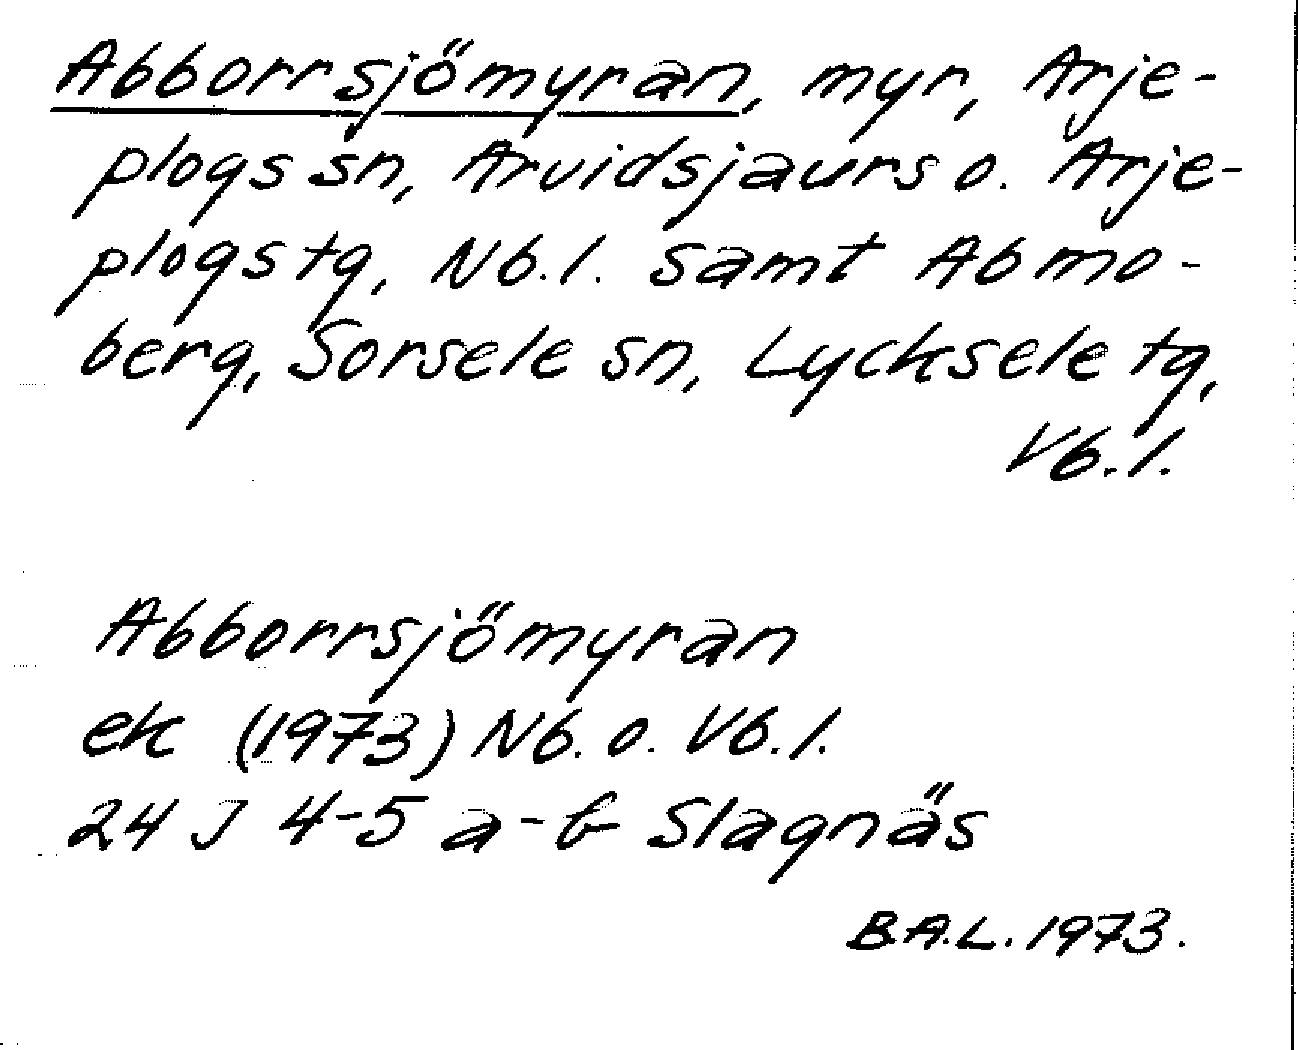 Abborrsjömyran, myr, Arje-
plogs sn, Arvidsjaurs o. Arje-
plogs tg, Nb.l. samt Abmo-
berg, Sorsele sn, Lycksele tg,
Vb.l.
Abborrsjömyran
ek (1973) Nb. o. Vb.l.
24 J 4-5 a-b Slagnäs
B.A.L. 1973.